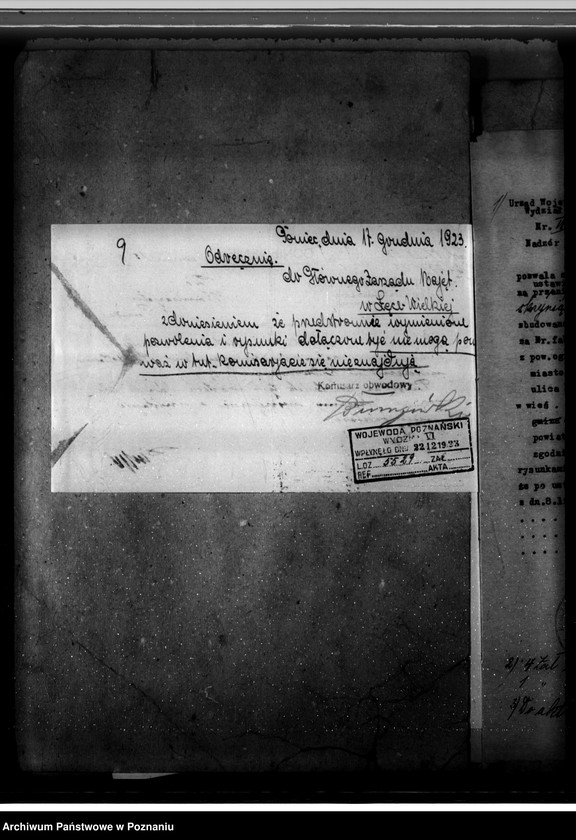 9
Poniec, dnia 17. grudnia 1923.
Odręcznie.
do Głównego Zarządu Majęt.
w Łęce Wielkiej
z doniesieniem że przedstronnie wymienione
pozwolenia i rysunki dołączone być nie mogą pon
waż w tut. Komisarjacie się nie znajdują
Komisarz obwodowy
WOJEWODA POZNAŃSKI
WYDZIAŁ II
WPŁYNĘŁO DNIA 22 12 1923
L.DZ. 5529 ZAŁ.
REF. AKTA
1/ Urząd Woje
Wydzia
Nr.
Nadzór
pozwala
ustaw
na
zbudowane
za Nr. fa
z pow. og
miasto
ulica
w wieś
gmina
powiat
zgodni
rysunkami
że po us
z dn. 8.1
2/
3/ Do akt
Archiwum Państwowe w Poznaniu